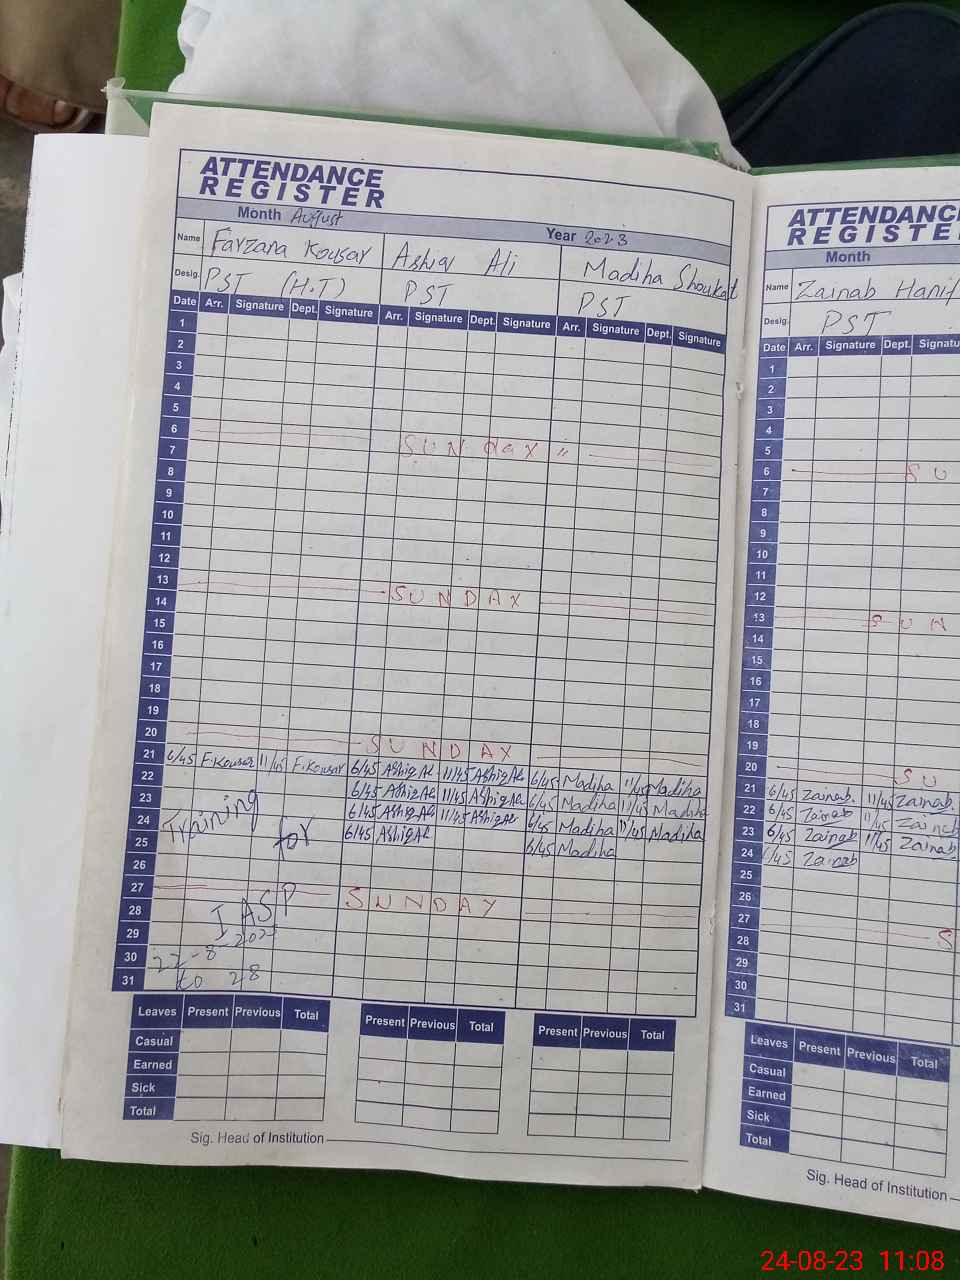 ATTENDANCE
REGISTER
Month August Year 2023
Name Farzana Kousar Ashiq Ali Madiha Shoukat
Desig. PST (H.T) PST PST
Date Arr. Signature Dept. Signature Arr. Signature Dept. Signature Arr. Signature Dept. Signature
1
2
3
4
5
6
7 SUNdaY "
8
9
10
11
12
13
14 SUNDAY
15
16
17
18
19
20 SUNDAY
21 6/45 F.Kousar 11/45 F.Kousar 6/45 Ashiq Ali 11/45 Ashiq Ali 6/45 Madiha 11/45 Madiha
22 6/45 Ashiq Ali 11/45 Ashiq Ali 6/45 Madiha 11/45 Madiha
23 Training 6/45 Ashiq Ali 11/45 Ashiq Ali 6/45 Madiha 11/45 Madiha
24 for 6/45 Ashiq Ali 6/45 Madiha
25
26
27 SUNDAY
28 IASP
29 22-8-2023
30 to 28
31
Leaves Present Previous Total Present Previous Total Present Previous Total
Casual
Earned
Sick
Total
Sig. Head of Institution
ATTENDANC
REGISTE
Month
Name Zainab Hanif
Desig. PST
Date Arr. Signature Dept. Signatu
1
2
3
4
5
6 SU
7
8
9
10
11
12
13 SUN
14
15
16
17
18
19
20 SU
21 6/45 Zainab. 11/45 Zainab.
22 6/45 Zainab 11/45 Zainab
23 6/45 Zainab 11/45 Zainab
24 6/45 Zainab
25
26
27 S
28
29
30
31
Leaves Present Previous Total
Casual
Earned
Sick
Total
Sig. Head of Institution
24-08-23 11:08